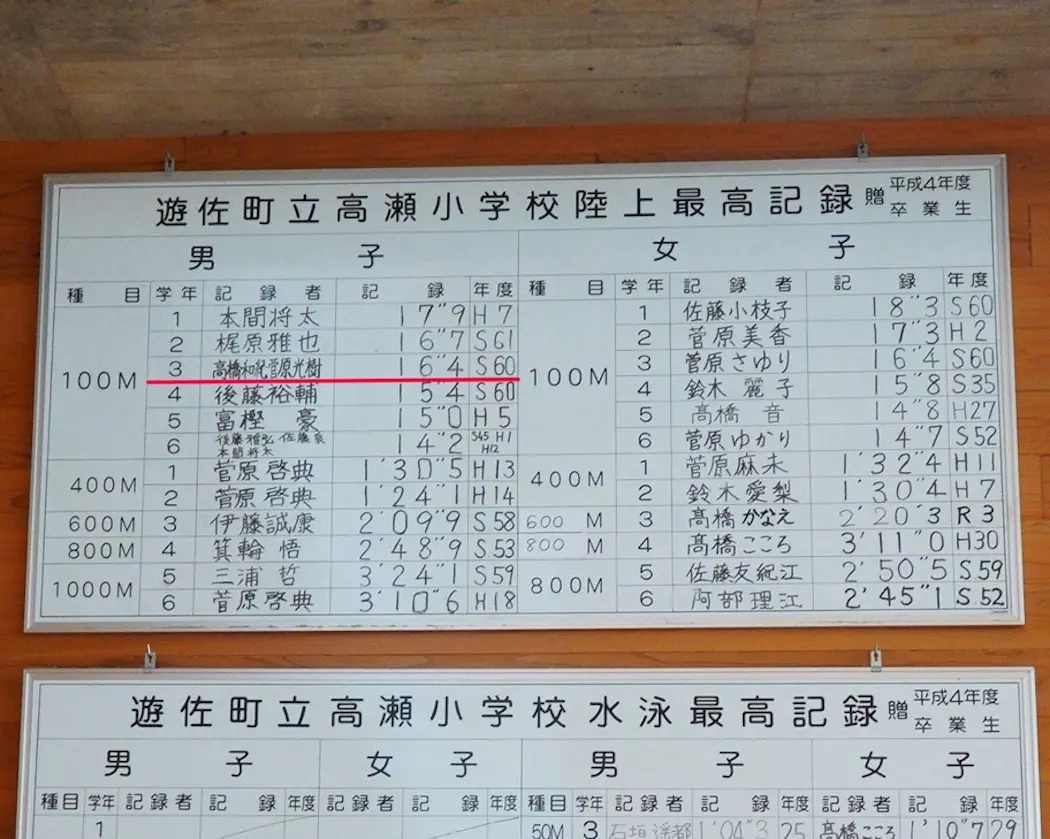 遊佐町立高瀬小学校陸上最高記録 贈 平成4年度 卒業生
男子 女子
種目 学年 記録者 記録 年度 種目 学年 記録者 記録 年度
100M 1 本間将太 17"9 H7 100M 1 佐藤小枝子 18"3 S60
2 梶原雅也 16"7 S61 2 菅原美香 17"3 H2
3 高橋和紀 菅原光樹 16"4 S60 3 菅原さゆり 16"4 S60
4 後藤裕輔 15"4 S60 4 鈴木麗子 15"8 S35
5 富樫豪 15"0 H5 5 髙橋音 14"8 H27
6 後藤雅弘 佐藤 本間将太 14"2 S45 H1 H12 6 菅原ゆかり 14"7 S52
400M 1 菅原啓典 1'30"5 H13 400M 1 菅原麻未 1'32"4 H11
2 菅原啓典 1'24"1 H14 2 鈴木愛梨 1'30"4 H7
600M 3 伊藤誠康 2'09"9 S58 600M 3 髙橋かなえ 2'20"3 R3
800M 4 箕輪悟 2'48"9 S53 800M 4 髙橋こころ 3'11"0 H30
1000M 5 三浦哲 3'24"1 S59 800M 5 佐藤友紀江 2'50"5 S59
6 菅原啓典 3'10"6 H18 6 阿部理江 2'45"1 S.52
遊佐町立高瀬小学校水泳最高記録 贈 平成4年度 卒業生
男子 女子 男子 女子
種目 学年 記録者 記録 年度 記録者 記録 年度 種目 学年 記録者 記録 年度 記録者 記録 年度
1 50M 3 石垣遥都 1'04"3 25 髙橋こころ 1'10"7 29